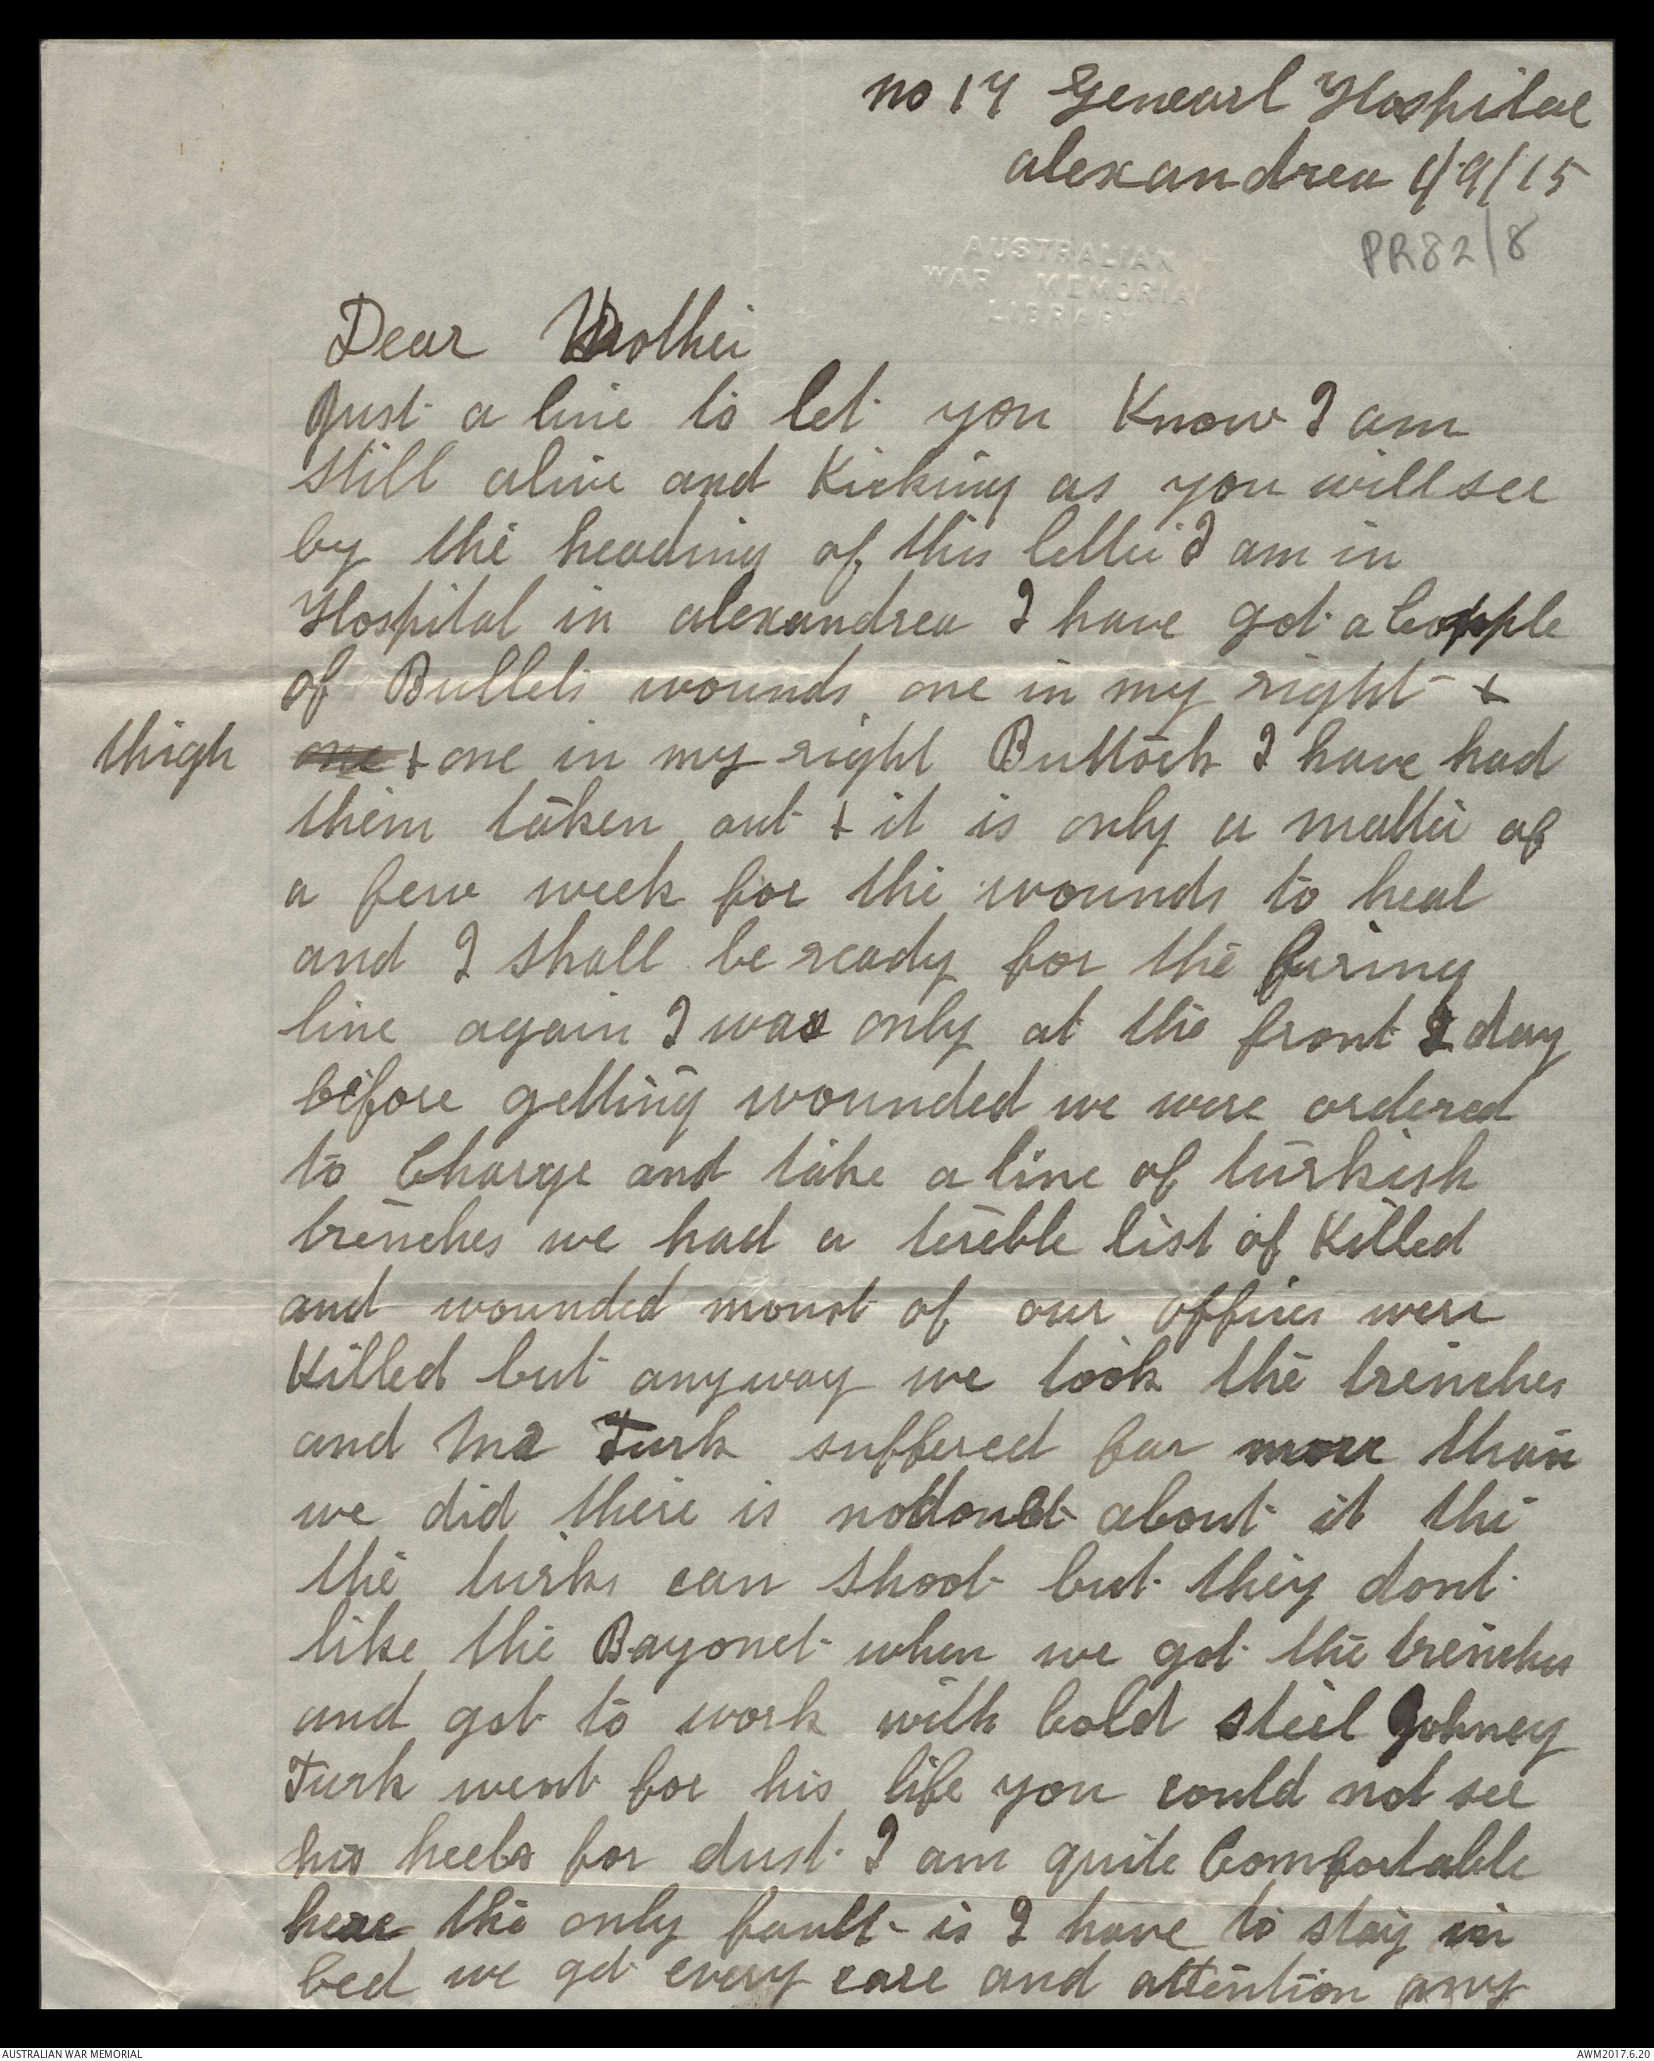 no 17 Genearl Hospital
alexandrea 4/9/15
PR82/8
AUSTRALIAN
WAR MEMORIAL
LIBRARY
Dear Mother
Just a line to let you Know I am
still alive and Kicking as you will see
by the heading of this letter I am in
Hospital in alexandrea I have got a Copple
of Bullets wounds one in my right &
thigh one & one in my right Buttock I have had
them taken out & it is only a matter of
a few week for the wounds to heal
and I shall be ready for the firing
line again I was only at the front 1 day
before getting wounded we were ordered
to Charge and take a line of turkish
trenches we had a tereble list of Killed
and wounded moust of our offires were
Killed but anyway we took the trenches
and Mr Turk suffered far more than
we did there is no dout about it the
the turks can shoot but they dont
like the Bayonet when we got the trenches
and got to work with Cold steel Johney
Turk went for his life you could not see
his heels for dust I am quite Comfortable
here the only fault is I have to stay in
bed we get every care and attention any
AUSTRALIAN WAR MEMORIAL
AWM2017.6.20